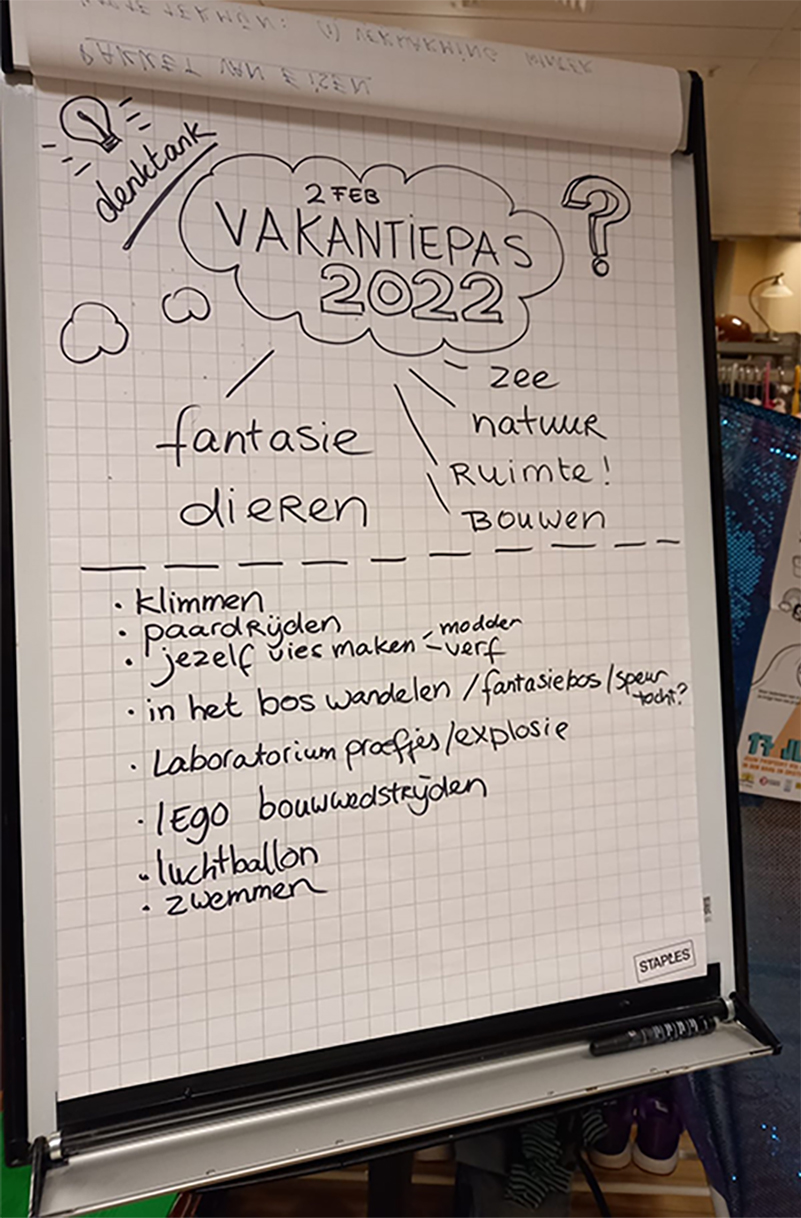 PAKKET VAN EISEN
denktank
2 FEB
VAKANTIEPAS
2022
?
fantasie
dieren
zee
natuur
Ruimte!
Bouwen
· klimmen
· paardrijden
· jezelf vies maken - modder
- verf
· in het bos wandelen / fantasiebos / speur
tocht?
· Laboratorium proefjes/explosie
· LEGO bouwwedstrijden
· luchtballon
· zwemmen
STAPLES
17 JU